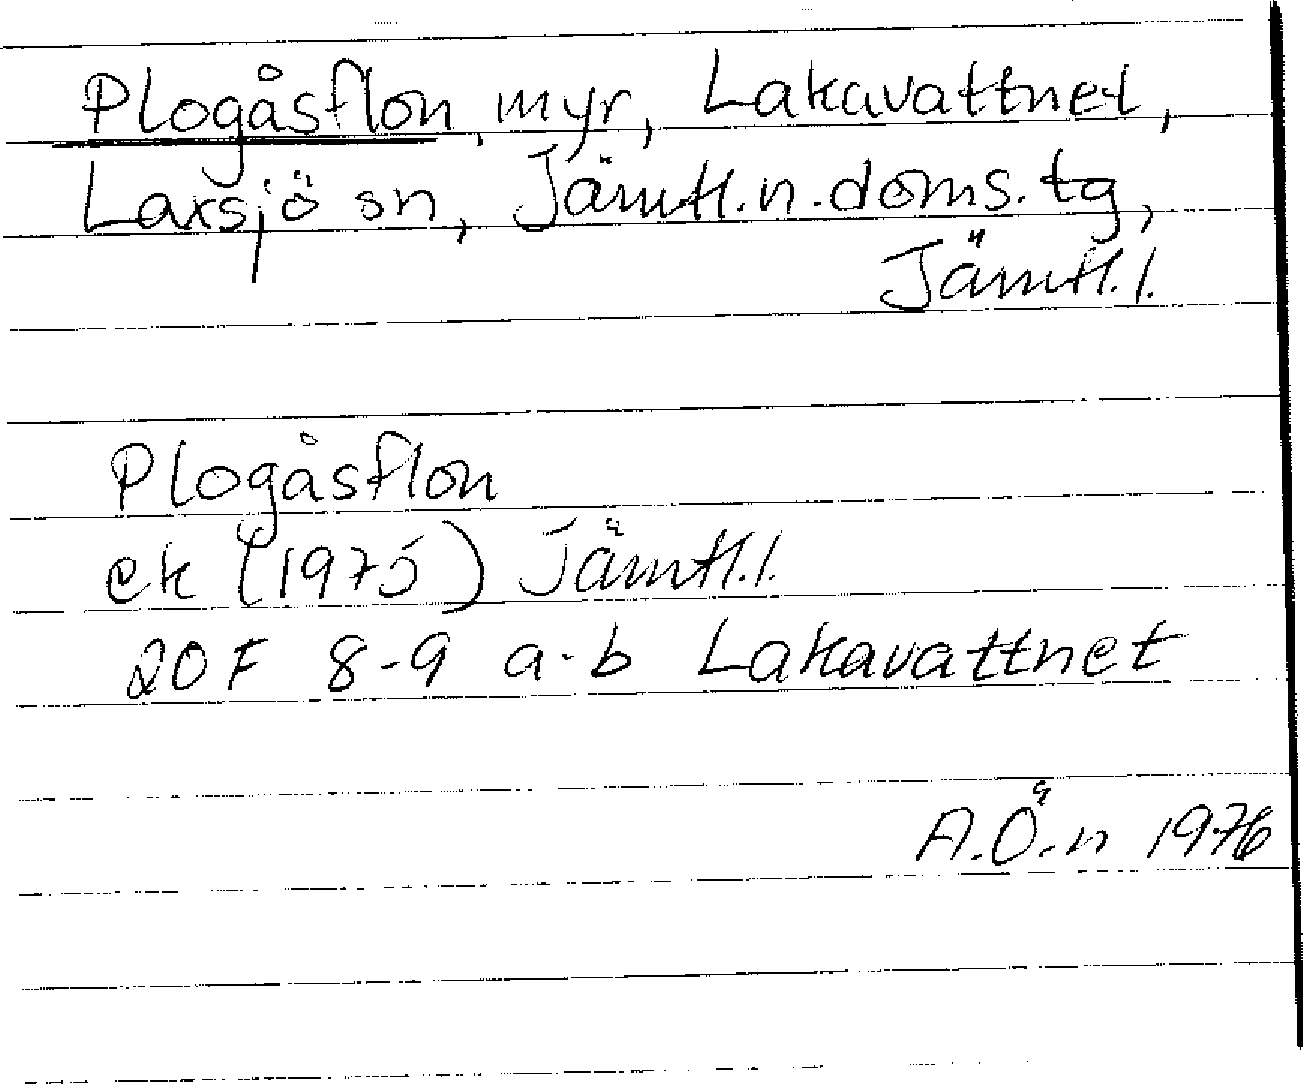 Plogåsflon, myr, Lakavattnet,
Laxsjö sn, Jämtl.n.doms.tg,
Jämtl.l.
Plogåsflon
ek (1975) Jämtl.l.
20F 8-9 a-b Lakavattnet
A.Ö.n 1976